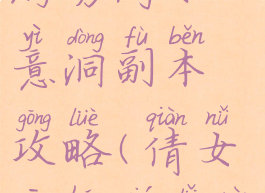 yì dòng fù běn
意洞副本
gōng lüè qiàn nǚ
攻略(倩女